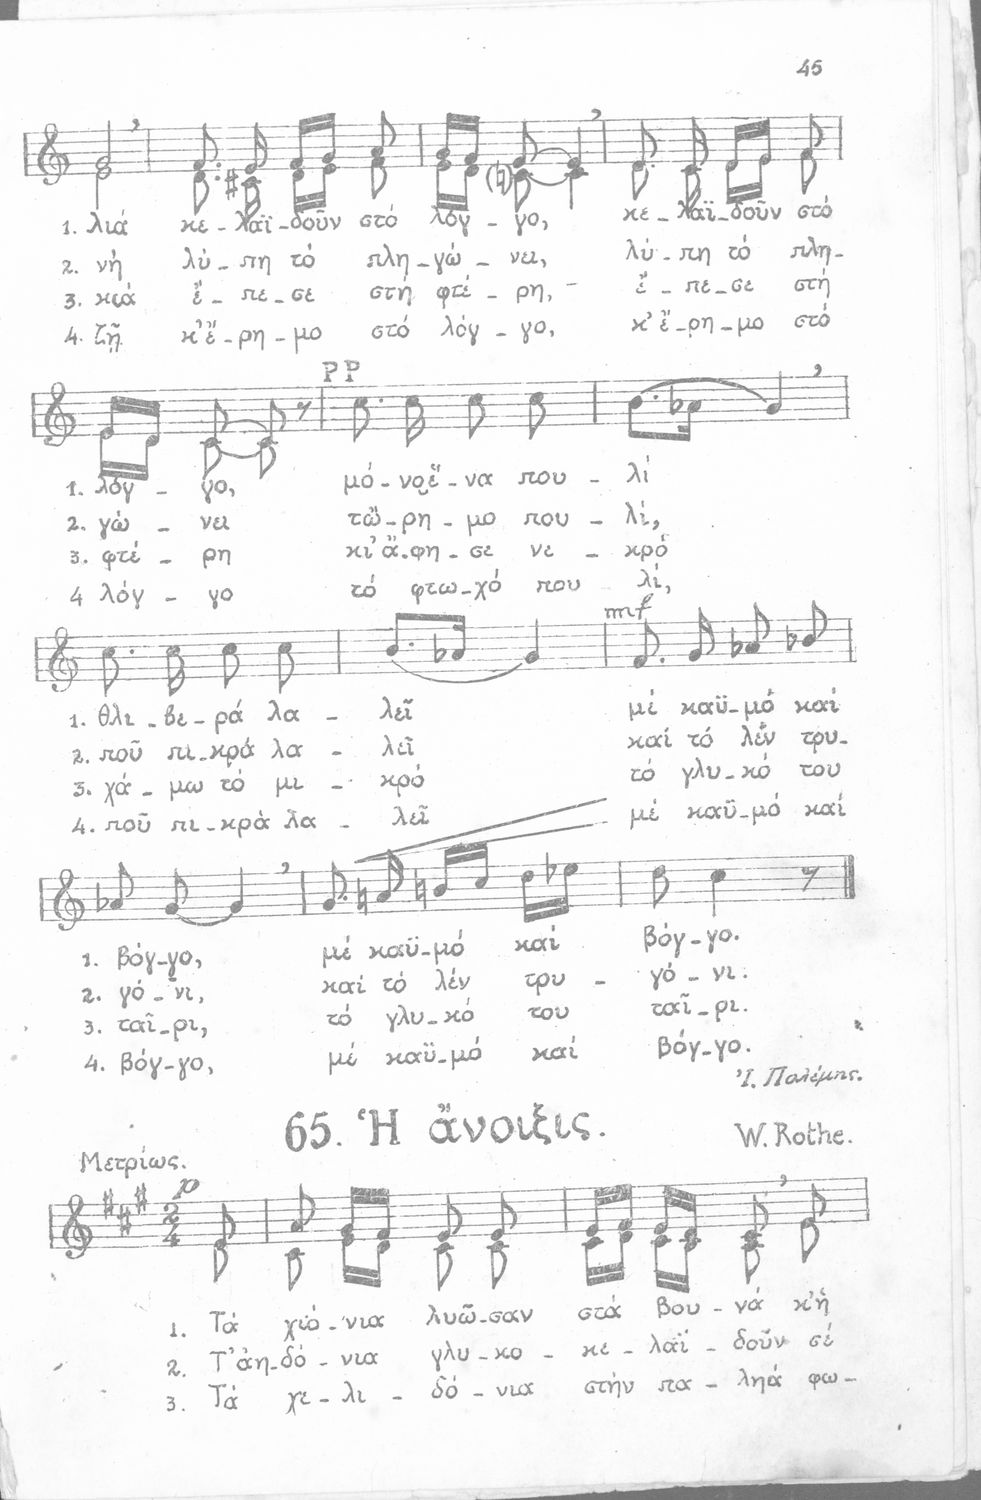 45
1. λιά κε - λαϊ - δοῦν στό λόγ - γο, κε - λαϊ - δοῦν στό
2. νή λύ - πη τό πλη - γώ - νει, λύ - πη τό πλη -
3. κιά ἔ - πε - σε στή φτέ - ρη, - ἔ - πε - σε στή
4. ζῇ κ' ἔ - ρη - μο στό λόγ - γο, κ' ἔ - ρη - μο στό
PP
1. λόγ - γο, μό - νο ἕ - να που - λί
2. γώ - νει τὤ - ρη - μο που - λί,
3. φτέ - ρη κι' ἄ - φη - σε νε - κρό
4 λόγ - γο τό φτω - χό που λί,
mf
1. θλι - βε - ρά λα - λεῖ μέ καϋ - μό καί
2. ποῦ πι - κρά λα - λεῖ καί τό λέν τρυ -
3. χά - μω τό μι - κρό τό γλυ - κό του
4. ποῦ πι - κρά λα - λεῖ μέ καϋ - μό καί
1. βόγ - γο, μέ καϋ - μό καί βόγ - γο.
2. γό - νι, καί τό λέν τρυ - γό - νι.
3. ταῖ - ρι, τό γλυ - κό του ταῖ - ρι.
4. βόγ - γο, μέ καϋ - μό καί βόγ - γο.
Ἰ. Πολέμης.
65. Ἡ ἄνοιξις.
W. Rothe.
Μετρίως.
p
2
4
1. Τά χιό - νια λυῶ - σαν στά βου - νά κ' ἡ
2. Τ' ἀη - δό - νια γλυ - κο - κε - λαϊ - δοῦν σέ
3. Τά χε - λι - δό - νια στήν πα - ληά φω -